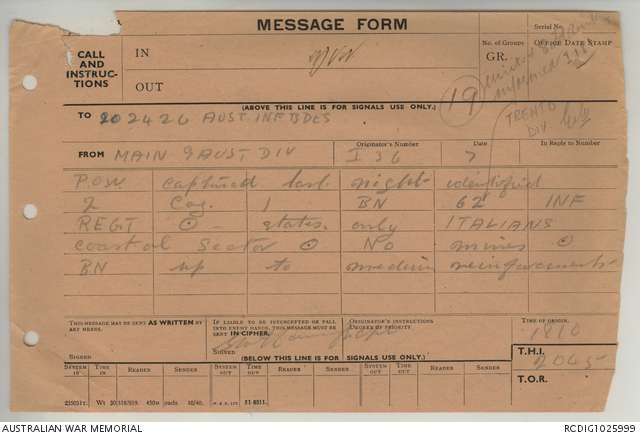 MESSAGE FORM
Serial No.
CALL AND INSTRUCTIONS
IN
OUT
No. of Groups
GR.
OFFICE DATE STAMP
19
(ABOVE THIS LINE IS FOR SIGNALS USE ONLY.)
TO 20 24 26 AUST INF BDES
TRENTO DIV
FROM MAIN 9 AUST DIV
Originator's Number
I 36
Date
7
In Reply to Number
P.O.W. captured last night identified
2 Coy. 1 BN 62 INF
REGT ⊙ states only ITALIANS
coastal Sector ⊙ No mines ⊙
BN up to medium reinforcements
THIS MESSAGE MAY BE SENT AS WRITTEN BY ANY MEANS.
SIGNED
IF LIABLE TO BE INTERCEPTED OR FALL INTO ENEMY HANDS, THIS MESSAGE MUST BE SENT IN CIPHER.
SIGNED
ORIGINATOR'S INSTRUCTIONS
DEGREE OF PRIORITY
TIME OF ORIGIN.
1810
(BELOW THIS LINE IS FOR SIGNALS USE ONLY.)
T.H.I.
2045
T.O.R.
SYSTEM IN TIME IN READER SENDER SYSTEM OUT TIME OUT READER SENDER SYSTEM OUT TIME OUT READER SENDER
51-8511.
AUSTRALIAN WAR MEMORIAL
RCDIG1025999